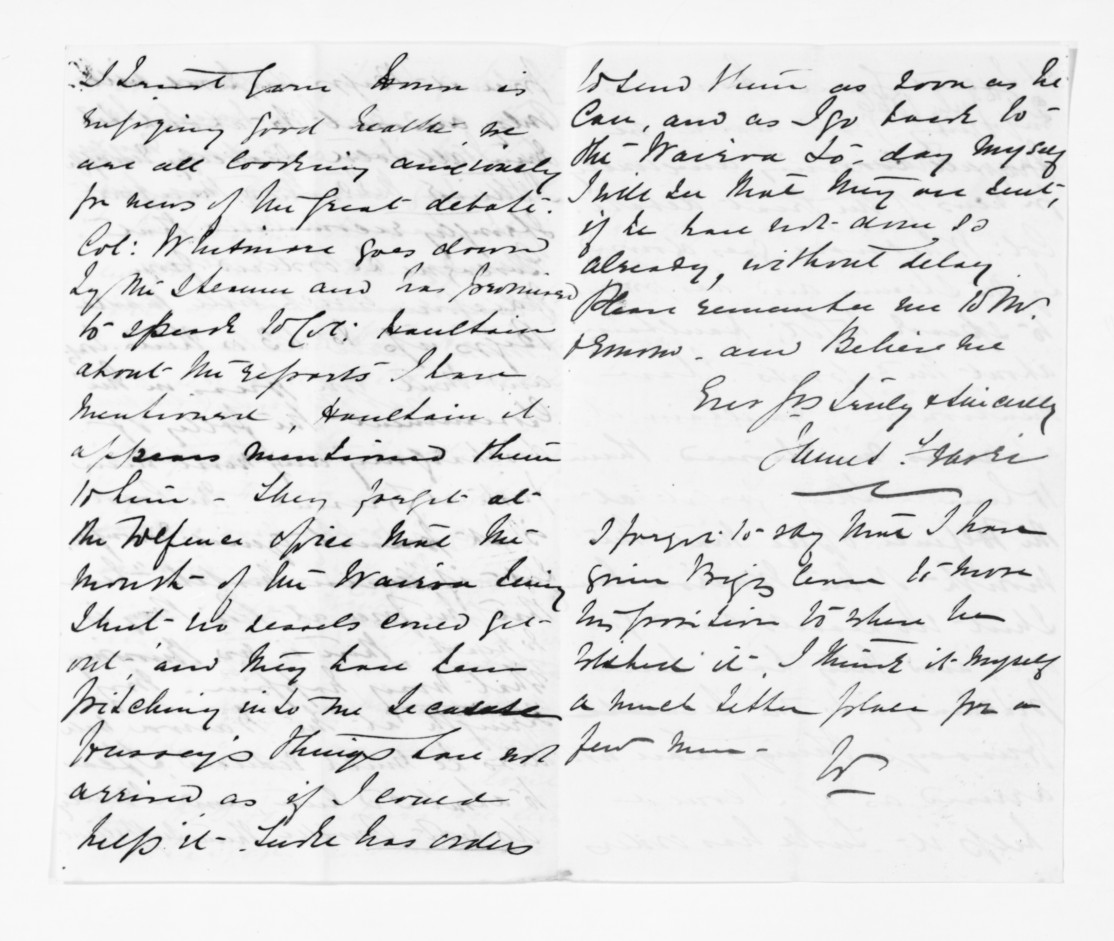 I trust Govn Domn is
enjoying good health we
are all looking anxiously
for news of the great debate.
Col: Whitmore goes down
by the Steamer and has promised
to speak to Col: Haultain
about the reports I have
mentioned, Haultain it
appears mentioned them
to him - They forget at
the Defence office that the
mouth of the Wairoa being
shut no vessels could get
out, and they have been
pitching into me because
Gussey's things have not
arrived as if I could
help it - Tuke has orders
to send them as soon as he
can, and as I go back to
the Wairoa to-day myself
I will see that they are sent,
if he have not done so
already, without delay
Please remember me to Mr.
Ormond - and Believe me
Ever Yrs truly & sincerely
James Fraser
I forgot to say that I have
given Biggs leave to move
his position to where he
wished it, I think it myself
a much better place for a
few men -